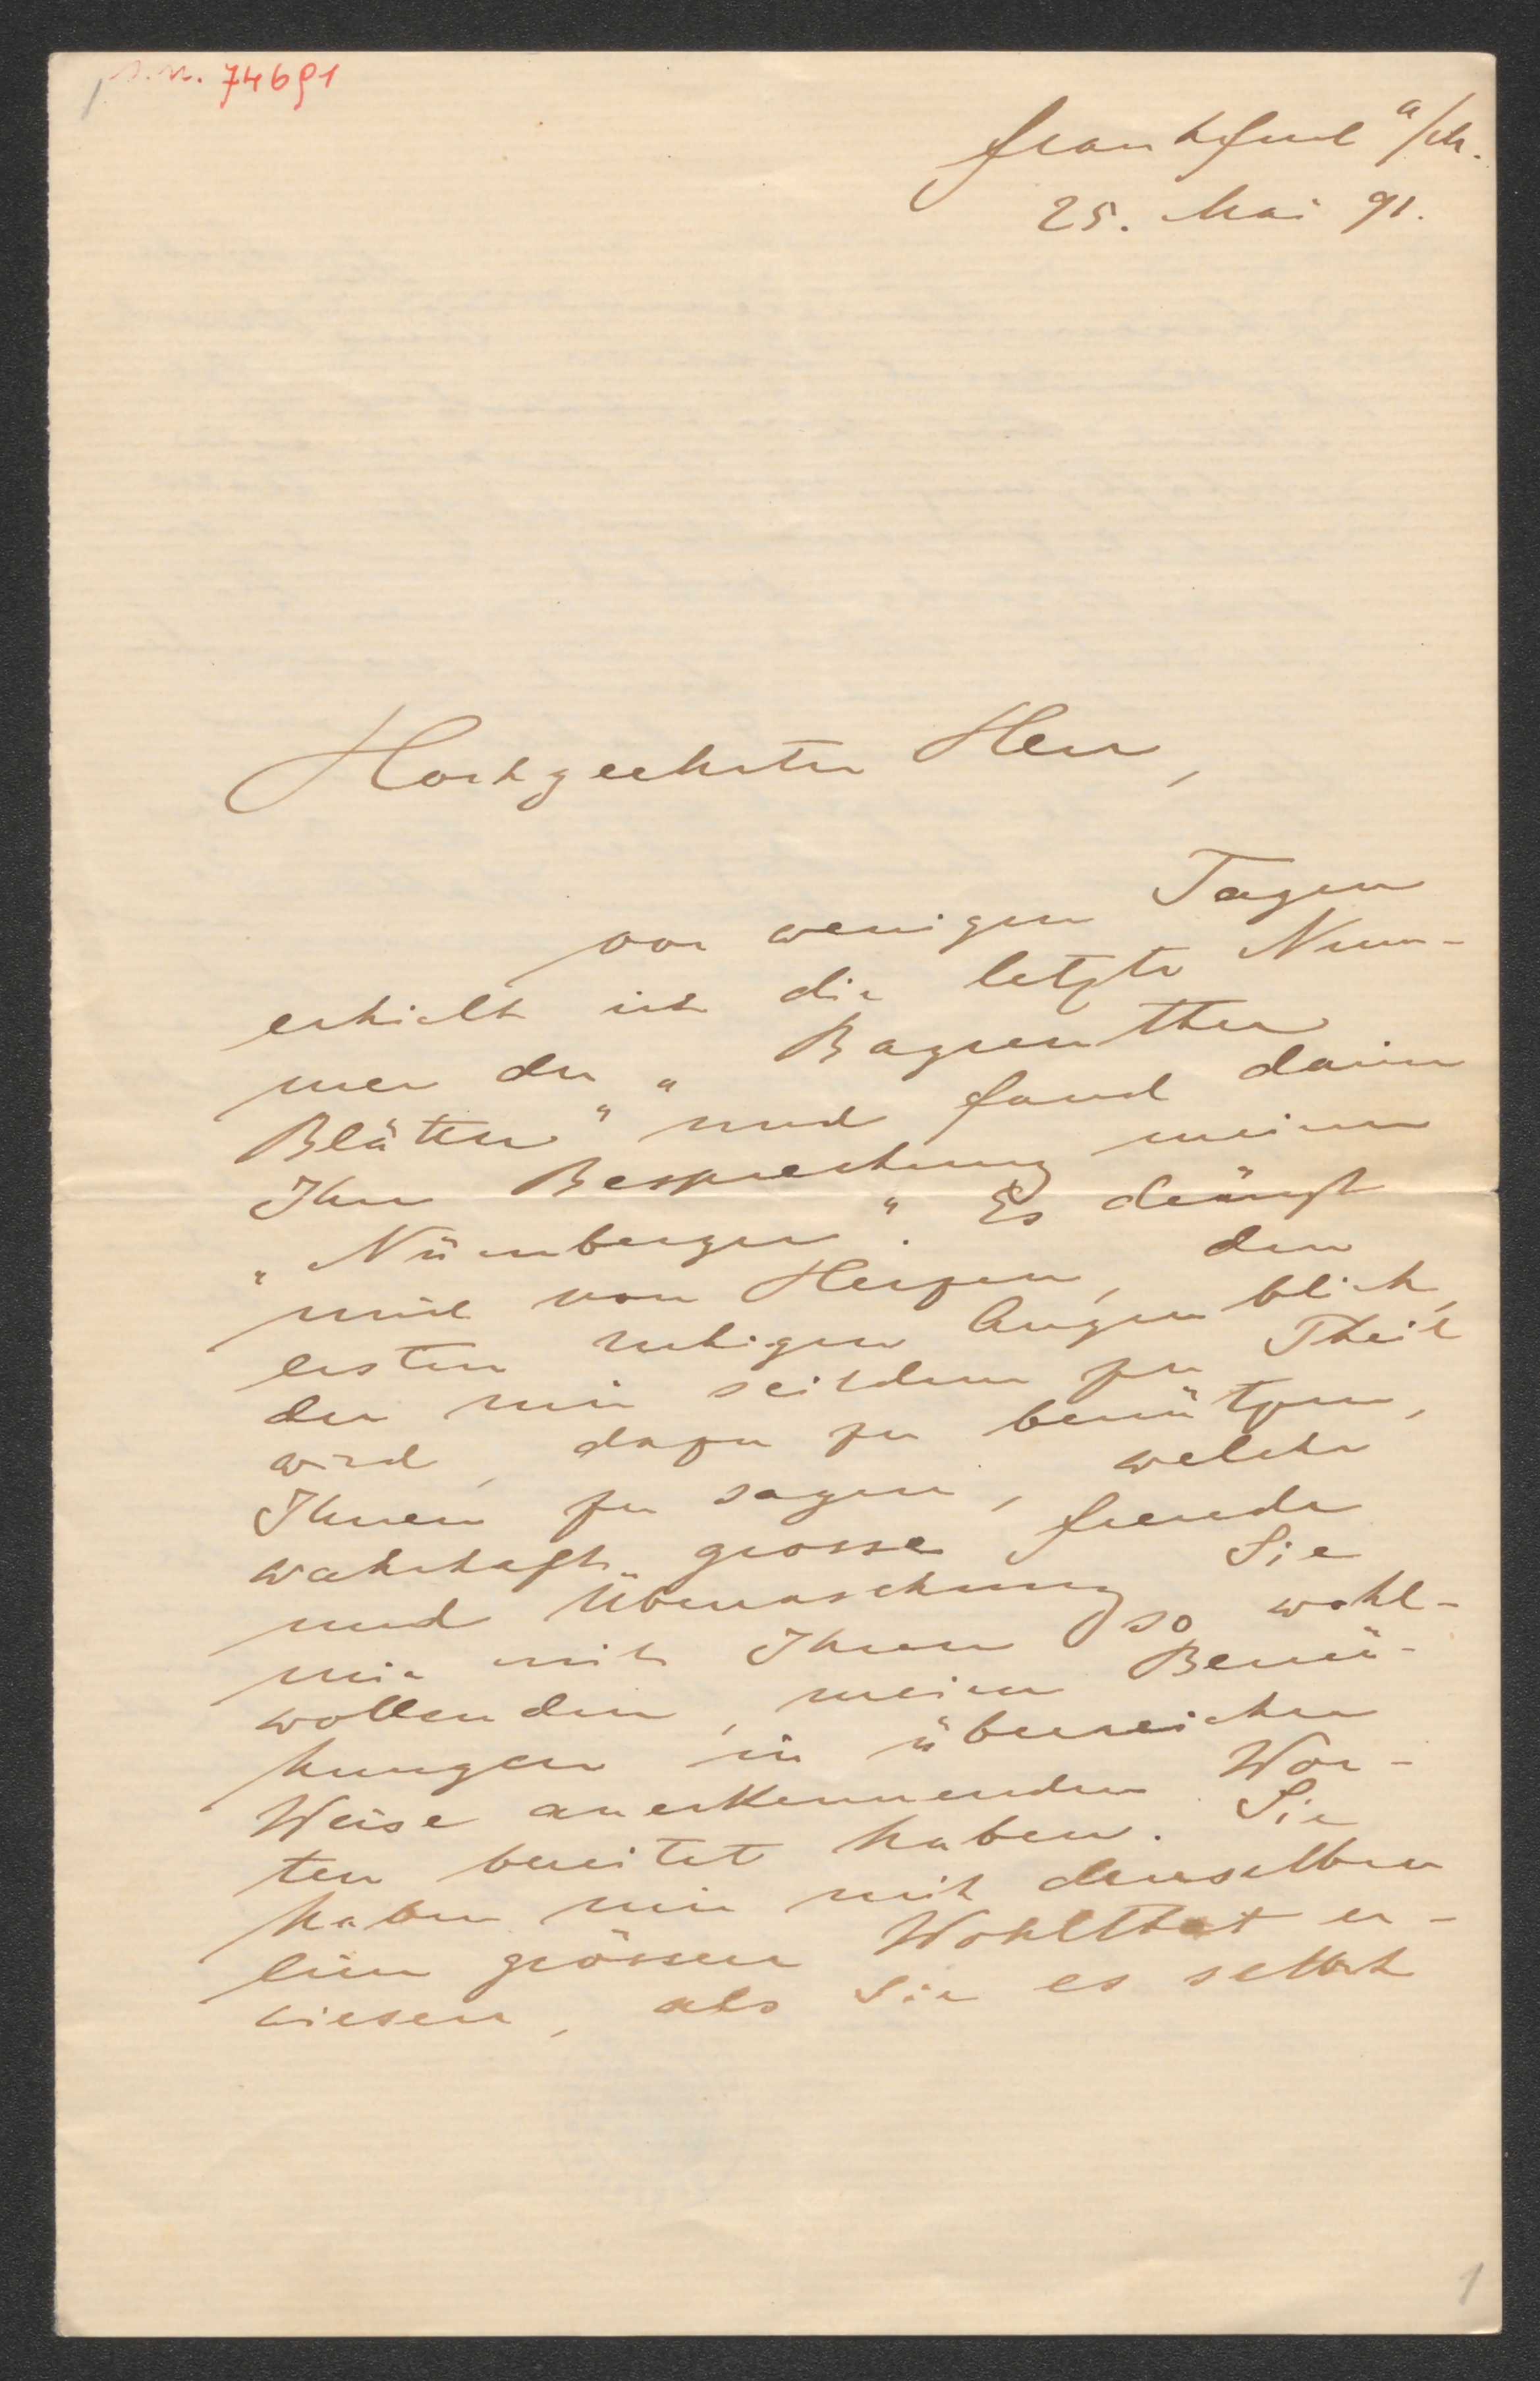 p.n. 74691
Frankfurt a/M.
25. Mai 91.
Hochgeehrter Herr,
vor wenigen Tagen
erhielt ich die letzte Num-
mer der „Bayreuther
Blätter“ und fand darin
Ihre Besprechung meiner
„Nürnberger“. Es drängt
mich von Herzen, den
ersten ruhigen Augenblick,
der mir seitdem zu Theil
wird, dazu zu benützen,
Ihnen zu sagen, welche
wahrhaft grosse Freude
und Überraschung Sie
mir mit Ihren so wohl-
wollenden, meine Bemü-
hungen in überreicher
Weise anerkennenden Wor-
ten bereitet haben. Sie
haben mir mit denselben
eine grössere Wohlthat er-
wiesen, als Sie es selbst
1